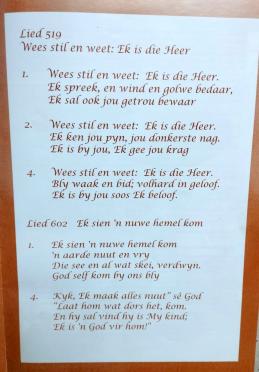 Lied 519
Wees stil en weet: Ek is die Heer
1. Wees stil en weet: Ek is die Heer.
Ek spreek, en wind en golwe bedaar,
Ek sal ook jou getrou bewaar
2. Wees stil en weet: Ek is die Heer.
Ek ken jou pyn, jou donkerste nag.
Ek is by jou, Ek gee jou krag
4. Wees stil en weet: Ek is die Heer.
Bly waak en bid; volhard in geloof.
Ek is by jou soos Ek beloof.
Lied 602 Ek sien 'n nuwe hemel kom
1. Ek sien 'n nuwe hemel kom
'n aarde nuut en vry
Die see en al wat skei, verdwyn.
God self kom by ons bly
4. Kyk, Ek maak alles nuut" sê God
"Laat hom wat dors het, kom.
En hy sal vind hy is My kind;
Ek is 'n God vir hom!"